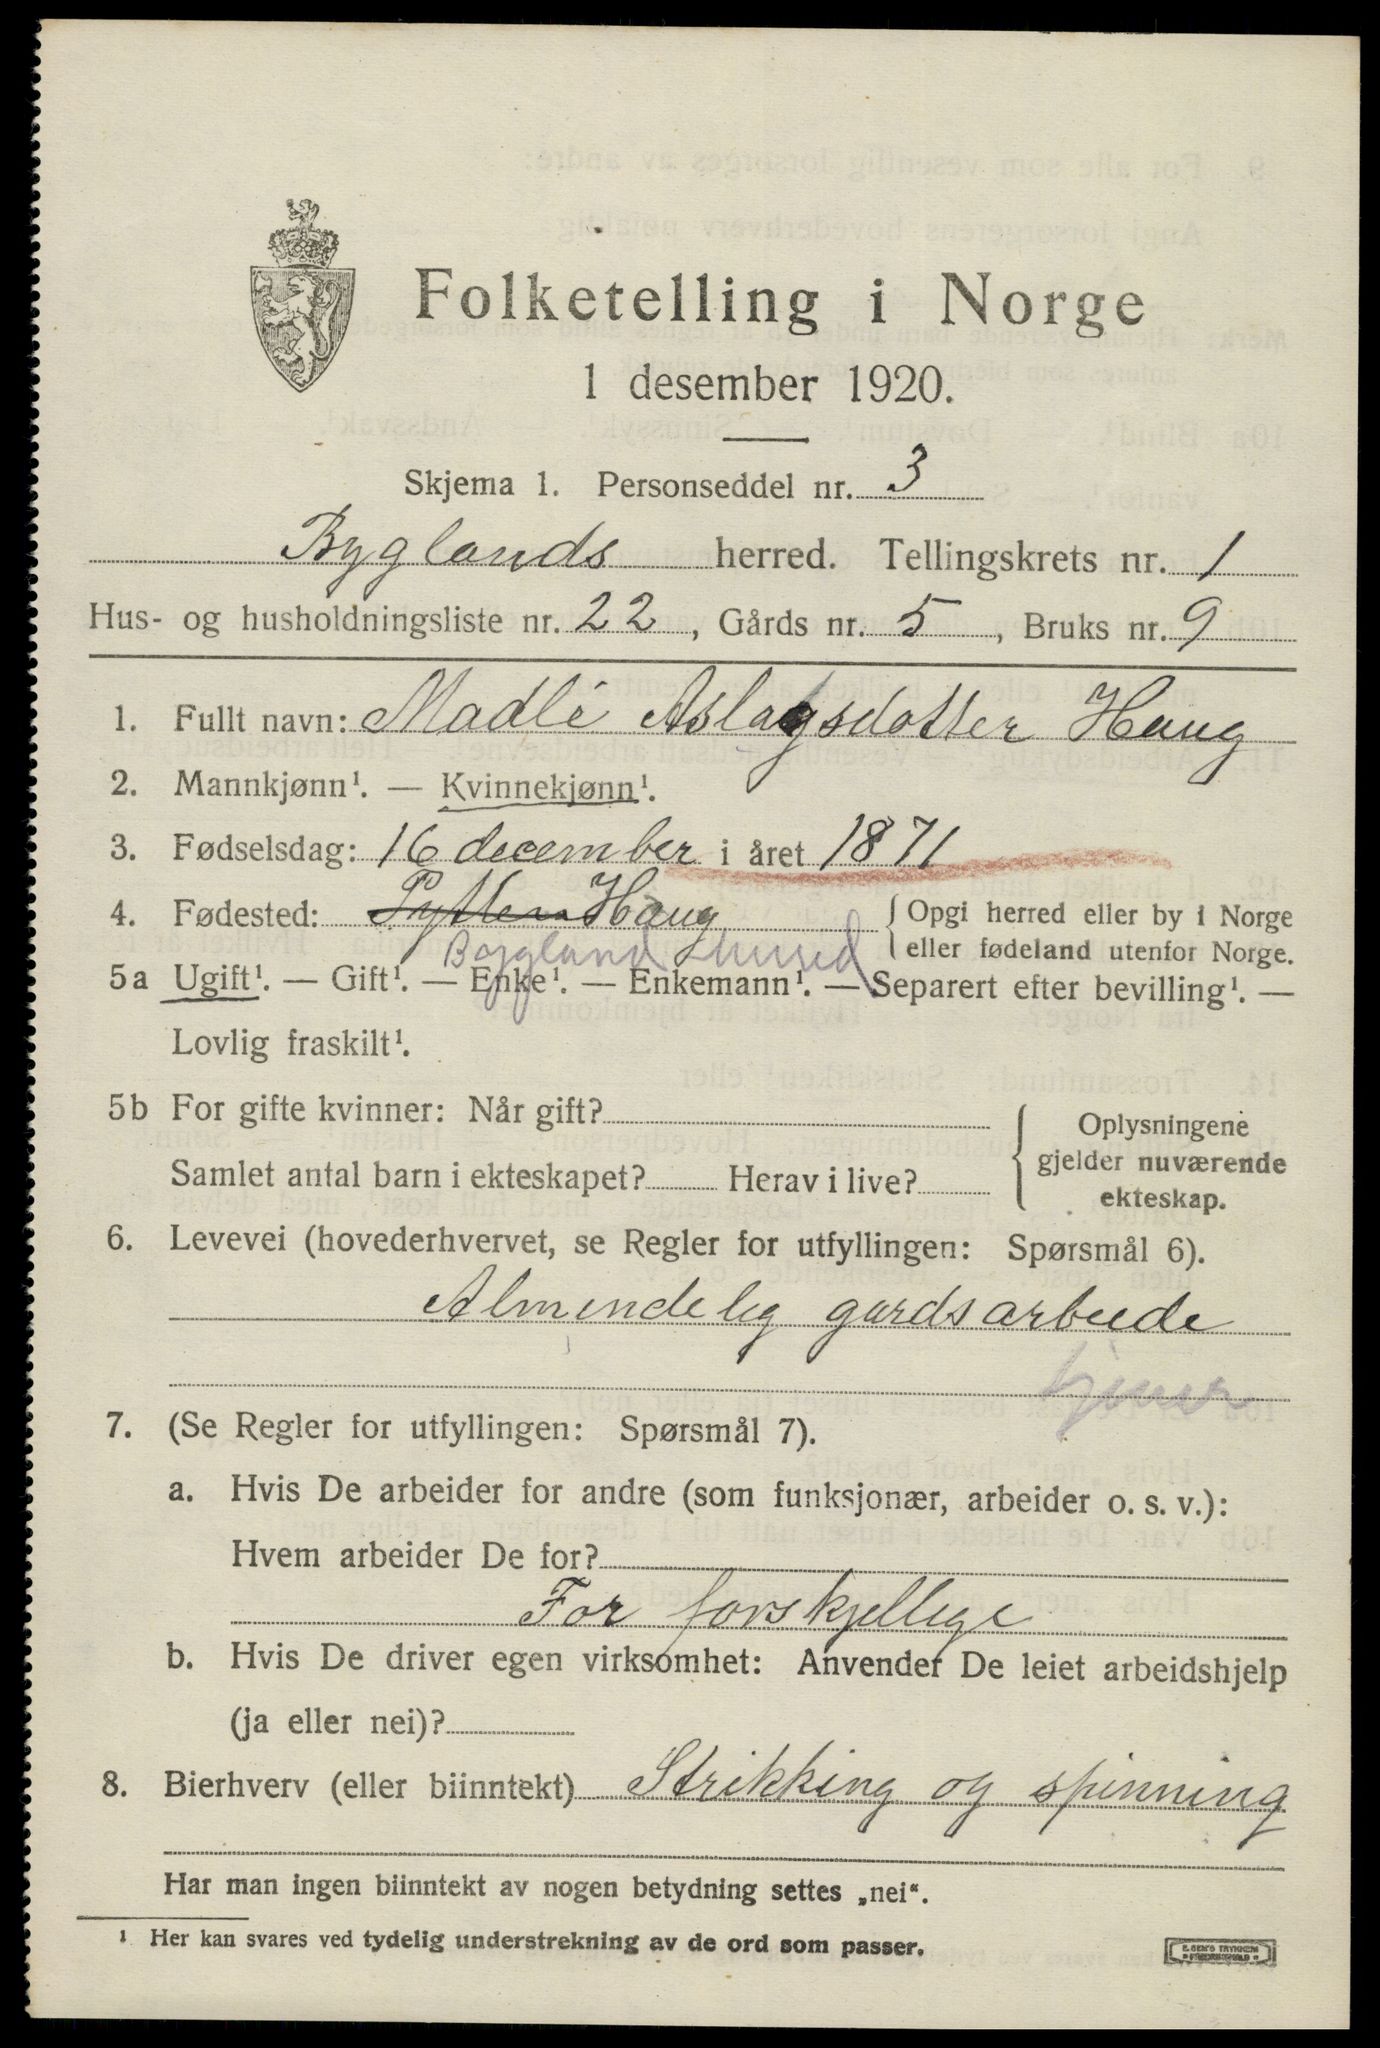 Folketelling i Norge
1 desember 1920.
Skjema 1. Personseddel nr. 3
Byglands herred. Tellingskrets nr. 1
Hus- og husholdningsliste nr. 22, Gårds nr. 5, Bruks nr. 9
1. Fullt navn: Madli Aslagsdotter Haug
2. Mannkjønn¹. — Kvinnekjønn¹.
3. Fødselsdag: 16 december i året 1871
4. Fødested: Haug { Opgi herred eller by i Norge
eller fødeland utenfor Norge.
Bygland
5a Ugift¹. — Gift¹. — Enke¹. — Enkemann¹. — Separert efter bevilling¹. —
Lovlig fraskilt¹.
5b For gifte kvinner: Når gift?
Samlet antal barn i ekteskapet? Herav i live?
{ Oplysningene
gjelder nuværende
ekteskap.
6. Levevei (hovederhvervet, se Regler for utfyllingen: Spørsmål 6).
Almindelig gardsarbeide
7. (Se Regler for utfyllingen: Spørsmål 7).
a. Hvis De arbeider for andre (som funksjonær, arbeider o. s. v.):
Hvem arbeider De for?
For forskjellige
b. Hvis De driver egen virksomhet: Anvender De leiet arbeidshjelp
(ja eller nei)?
8. Bierhverv (eller biinntekt) Strikking og spinning
Har man ingen biinntekt av nogen betydning settes „nei“.
¹ Her kan svares ved tydelig understrekning av de ord som passer.